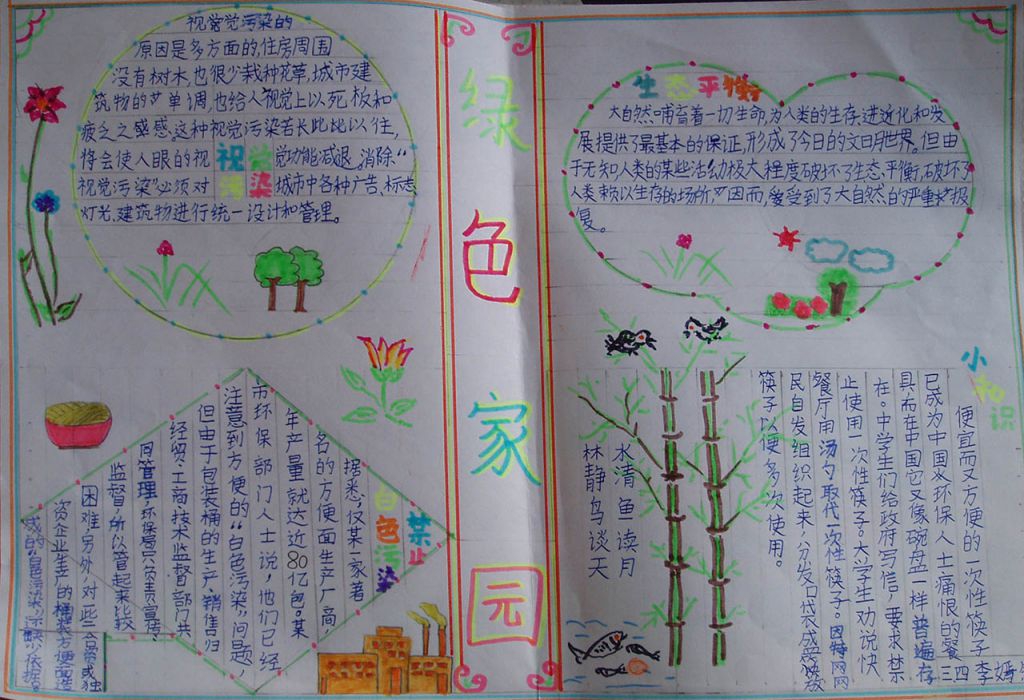 视觉觉污染的
原因是多方面的,住房周围
没有树木,也很少栽种花草,城市建
筑物的单调,也给人视觉上以死板和
疲乏之感感。这种视觉污染若长此比以往,
将会使人眼的视 觉功能减退。消除“
视觉污染”必须对 城市中各种广告、标志、
灯光、建筑物进行统一设计和管理。
视觉
污染
绿色家园
生态平衡
大自然哺育着一切生命,为人类的生存、进近化和发
展提供了最基本的保证,形成了今日的文明世界。但由
于无知人类的某些活动极大程度破坏了生态平衡,破坏了
人类赖以生存的场所,因而,爱受到了大自然的严重报
复。
禁止
白色污染
据悉,仅某一家著
名的方便面生产厂商,
年产量就达近80亿包。某
市环保部门人士说,他们已经
注意到方便的“白色污染”问题,
但由于包装桶的生产、销售归
经贸、工商、技术监督部门共
同管理,环保局只负责宣传、
监督,所以管起来比较
困难,另外,对此
资企业生产的桶装方便面造
成的“白色污染”,
水清鱼读月
林静鸟谈天
小知识
便宜而又方便的一次性筷子
已成为中国从环保人士痛恨的餐
具,而在中国它又像碗盘一样普遍存
在。中学生们给政府写信,要求禁
止使用一次性筷子。大学生劝说快
餐厅用汤勺取代一次性筷子。因特网网
民自发组织起来,分发口袋衣盛放
筷子以便多次使用。
三四 李嫣